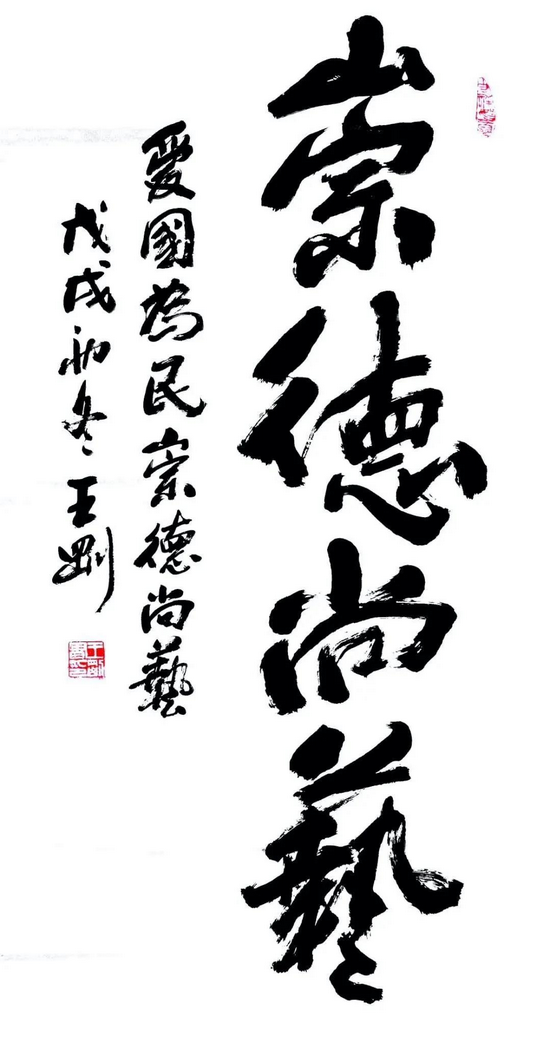 崇德尚藝
愛國為民崇德尚藝
戊戌初冬王剛